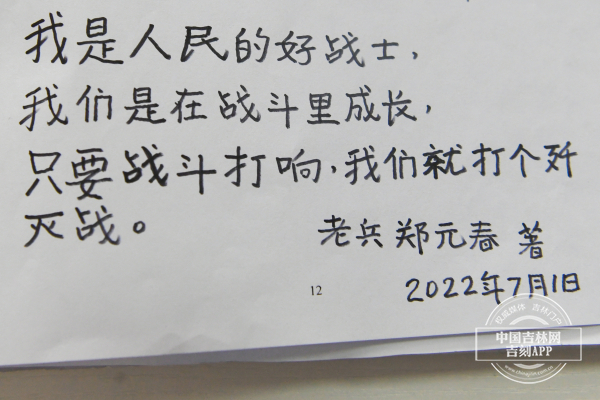 我是人民的好战士，
我们是在战斗里成长，
只要战斗打响，我们就打个歼
灭战。
老兵 郑元春 著
2022年7月1日
12
权威媒体 吉林门户
中国吉林网
吉刻APP